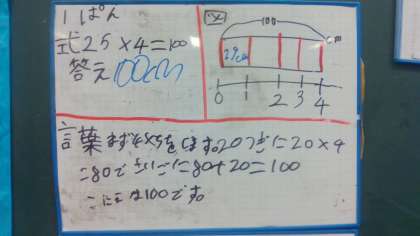 1ぱん
式25×4=100
答え100cm
図
100
cm
25cm
0 1 2 3 4
言葉まず4×5をします。20つぎに20×4
=80でさいごに80+20=100
こたえは100です。